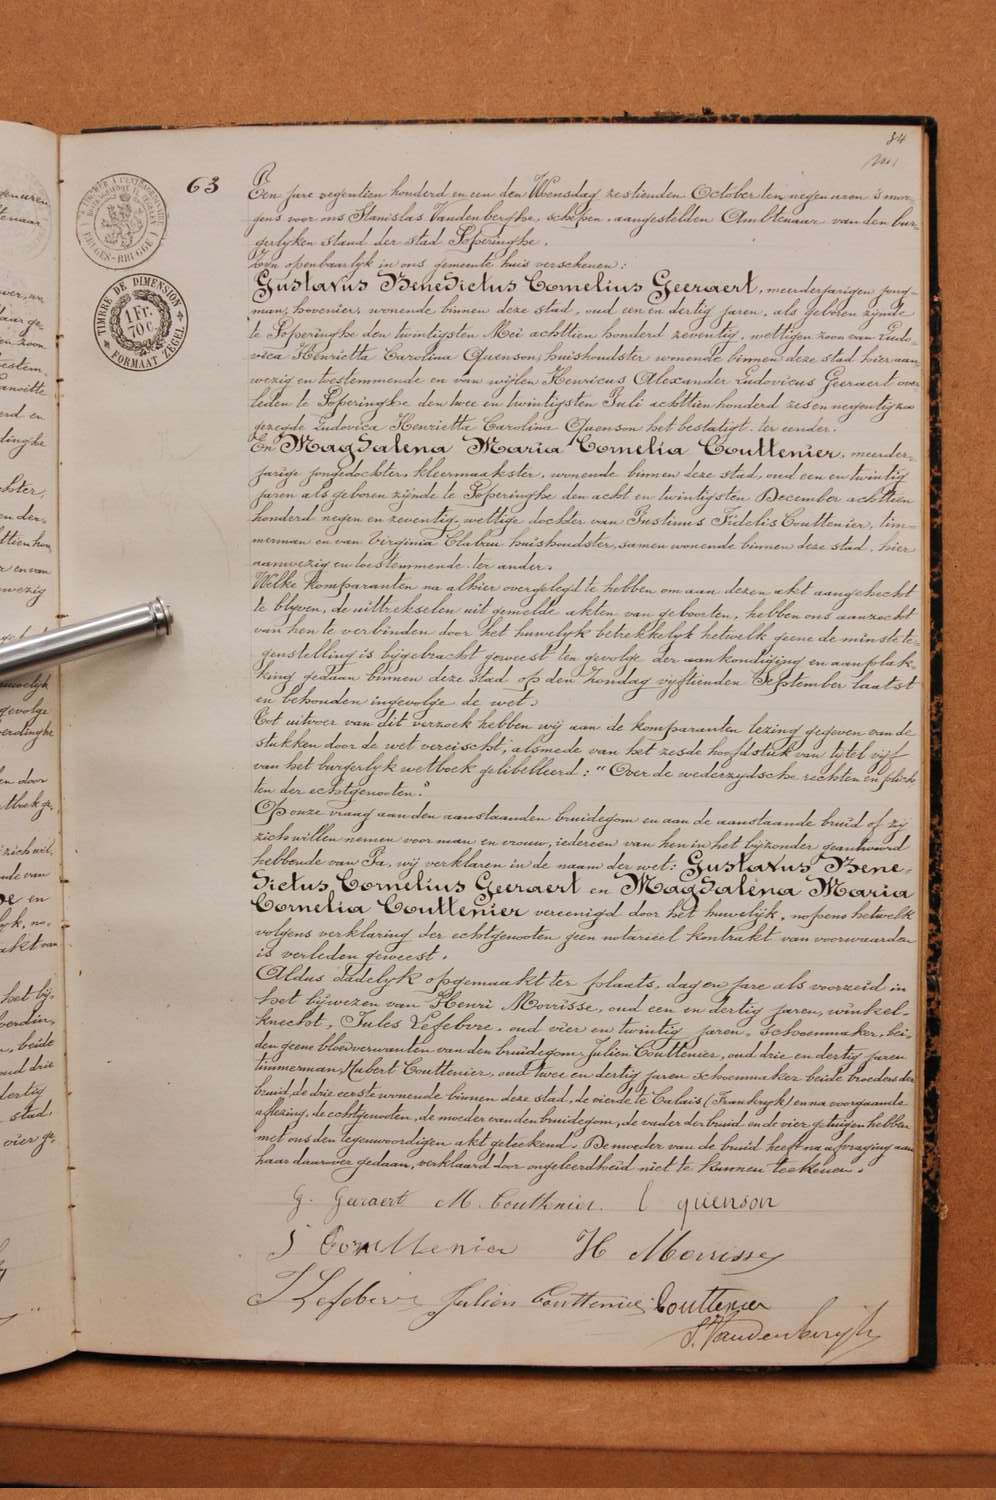 84
63
Een jare negentien honderd en een den Woensdag zestienden October ten negen uren 's mor-
gens voor ons Stanislas Vandenberghe, schepen, aangestelden Ambtenaar van den bur-
gerlyken stand der stad Poperinghe.
Zyn openbaarlyk in ons gemeente huis verschenen:
Gustavus Benedictus Cornelius Geeraert, meerderjarigen jong-
man, hovenier, wonende binnen deze stad, oud een en dertig jaren, als geboren zynde
te Poperinghe den twintigsten Mei achttien honderd zeventig, wettigen zoon van Ludo-
vica Henrietta Carolina Quenson, huishoudster wonende binnen deze stad hier aan-
wezig en toestemmende en van wylen Henricus Alexander Ludovicus Geeraert over
leden te Poperinghe den twee en twintigsten Juli achttien honderd zes en negentig zoo
gezegde Ludovica Henrietta Carolina Quenson het bestatigt. ter eender.
En Magdalena Maria Cornelia Couttenier, meerder-
jarige jongedochter, kleermaakster, wonende binnen deze stad, oud een en twintig
jaren als geboren zynde te Poperinghe den acht en twintigsten December achttien
honderd negen en zeventig, wettige dochter van Justinus Fidelis Couttenier, tim-
merman en van Virginia Clabau huishoudster, samen wonende binnen deze stad, hier
aanwezig en toestemmende. ter ander.
Welke komparanten na alhier overgelegd te hebben om aan dezen akt aangehecht
te blyven, de uittrekselen uit gemelde akten van geboorten, hebben ons aanzocht
van hen te verbinden door het huwelyk betrekkelyk hetwelk geene de minste te-
genstelling is bygebracht geweest ten gevolge der aankondiging en aanplak-
king gedaan binnen deze stad op den Zondag vyftienden September laatst
en behouden ingevolge de wet.
Tot uitvoer van dit verzoek hebben wij aan de komparanten lezing gegeven van de
stukken door de wet vereischt, alsmede van het zesde hoofdstuk van tytel vyf
van het burgerlyk wetboek gelibelleerd: "Over de wederzydsche rechten en plich
ten der echtgenooten."
Op onze vraag aan den aanstaanden bruidegom en aan de aanstaande bruid of zy
zich willen nemen voor man en vrouw, iedereen van hen in het byzonder geantwoord
hebbende van Ja, wij verklaren in de naam der wet: Gustavus Bene-
dictus Cornelius Geeraert en Magdalena Maria
Cornelia Couttenier vereenigd door het huwelijk, nopens hetwelk
volgens verklaring der echtgenooten geen notariëel kontrakt van voorwaarden
is verleden geweest.
Aldus dadelyk opgemaakt ter plaats, dag en jare als voorzeid in
het bijwezen van Henri Morisse, oud een en dertig jaren, winkel-
knecht, Jules Lefebvre, oud vier en twintig jaren, schoenmaker, bei-
den geene bloedverwanten van den bruidegom, Julien Couttenier, oud drie en dertig jaren
timmerman Hubert Couttenier, oud twee en dertig jaren schoenmaker beide broeders der
bruid, de drie eerste wonende binnen deze stad, de vierde te Calais (Frankryk) en na voorgaande
aflezing, de echtgenooten, de moeder van den bruidegom, de vader der bruid en de vier getuigen hebben
met ons den tegenwoordigen akt geteekend. De moeder van de bruid heeft na afvraging aan
haar daarover gedaan, verklaard door ongeleerdheid niet te kunnen teekenen.
G. Geeraert M. Couttenier. L quenson
J Couttenier H Morisse
J Lefebvre Julien Couttenier Couttenier
S. Vandenberghe
TIMBRE DE DIMENSION
1 Fr.
70 C.
FORMAAT ZEGEL
BRUGES-BRUGGE